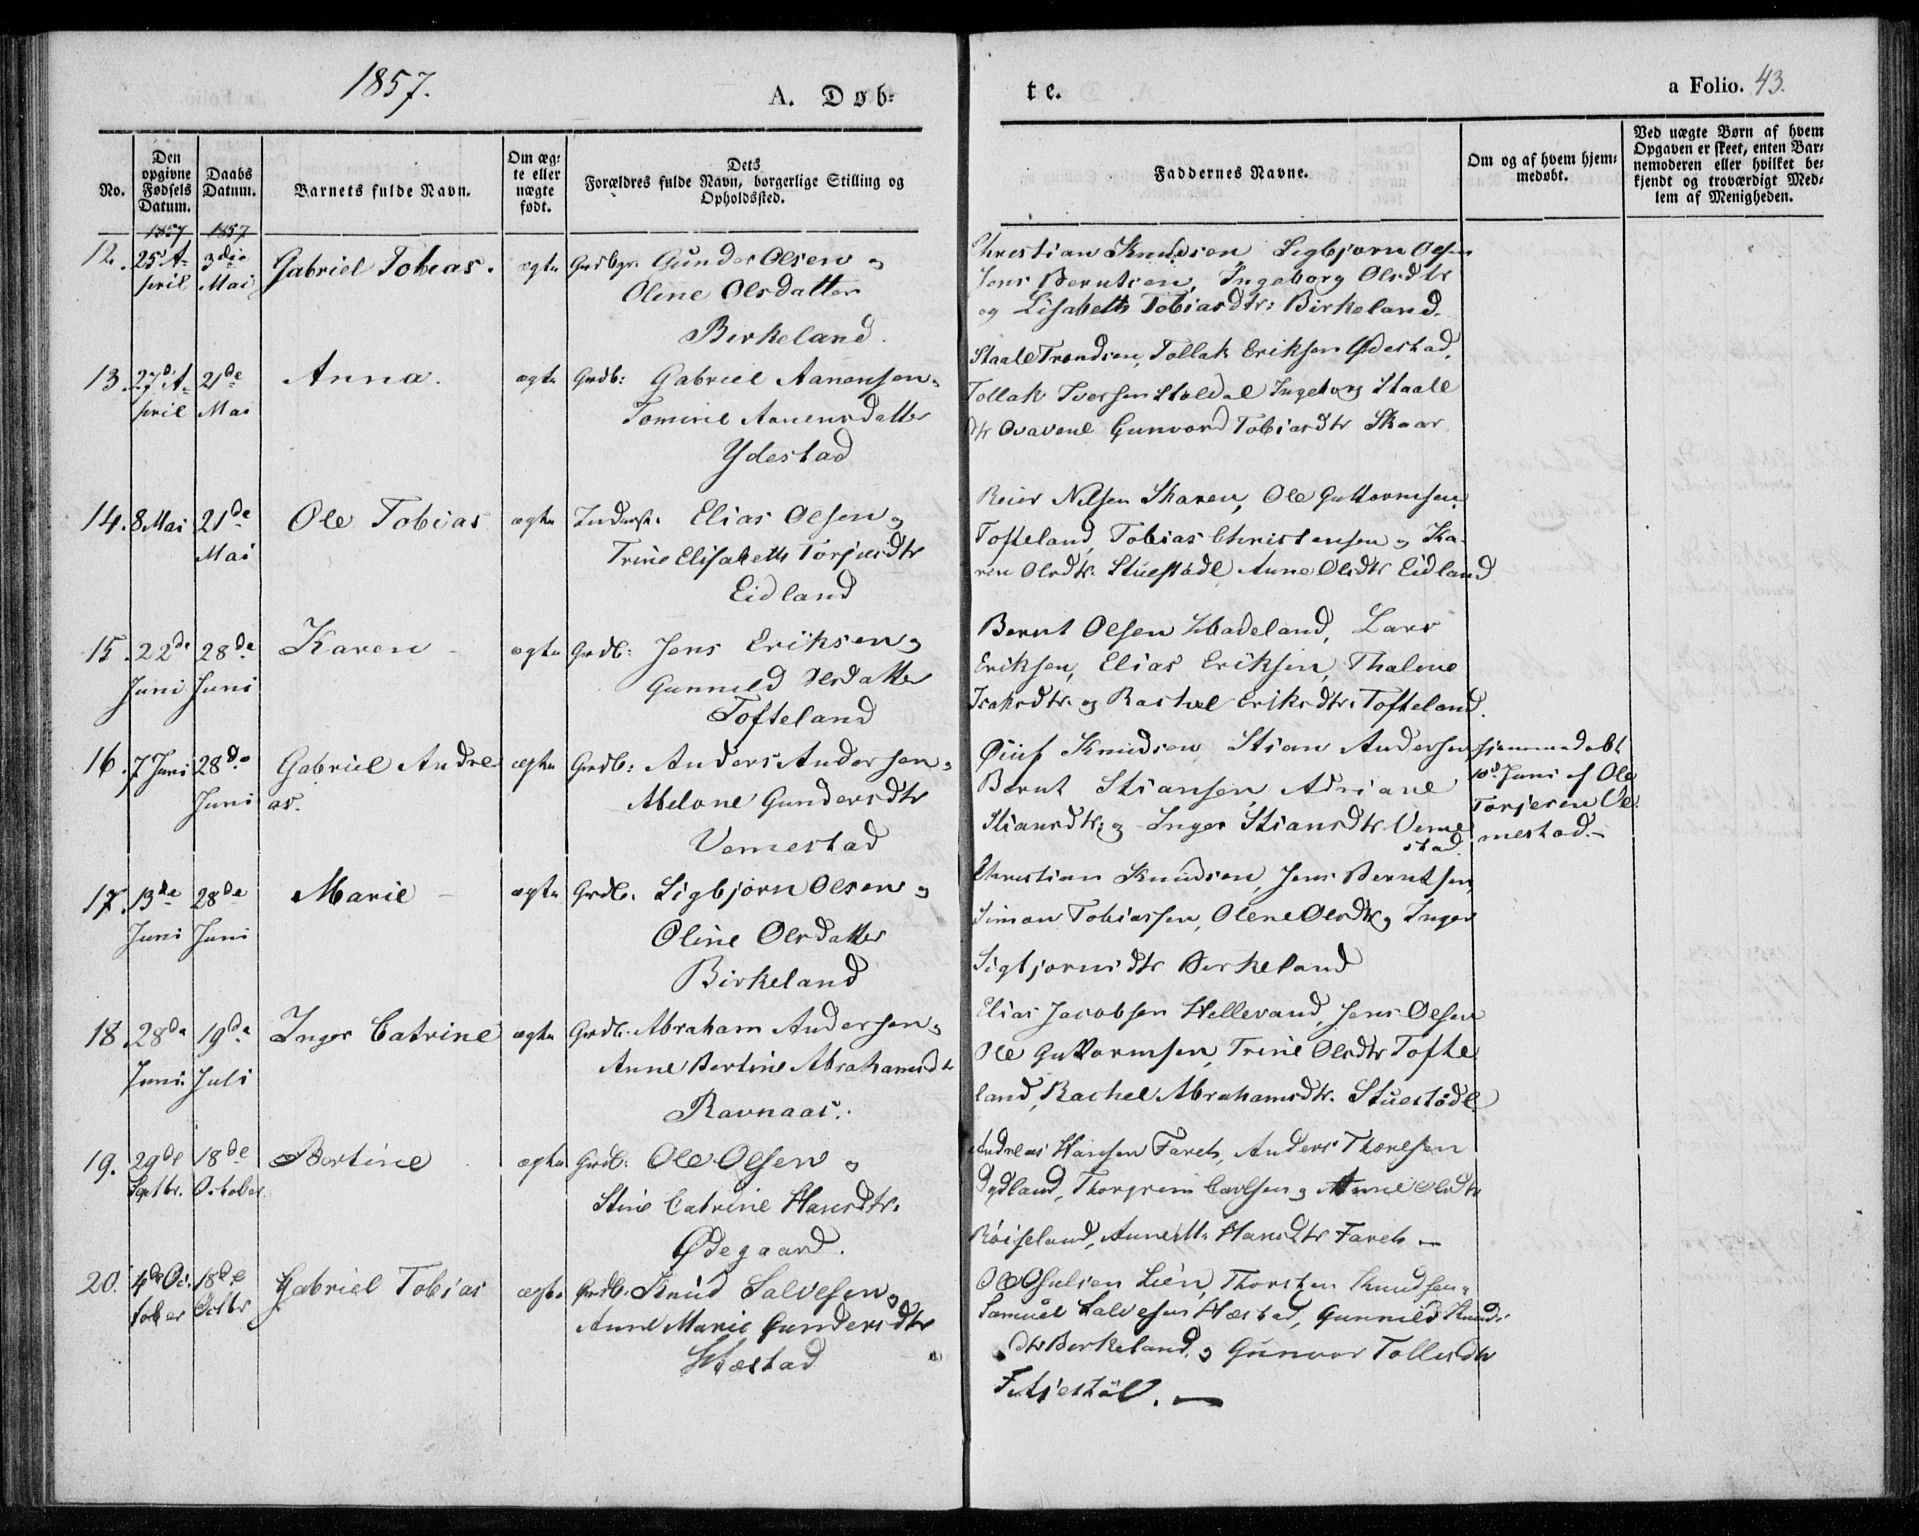 1857.
A. Døb-
te.
a Folio. 43.
No.
Den opgivne Fødsels Datum.
Daabs Datum.
Barnets fulde Navn.
Om ægte eller uægte født.
Dets Forældres fulde Navn, borgerlige Stilling og Opholdssted.
Faddernes Navne.
Om og af hvem hjemmedøbt.
Ved uægte Børn af hvem Opgaven er skeet, enten Barnemoderen eller hvilket bekjendt og troværdigt Medlem af Menigheden.
1857 1857
12. 25 A- 3die Gabriel Tobias. ægte Grdbgr. Gunder Olsen og
pril Mai Oline Olsdatter
Birkeland.
Christian Knudsen, Sigbjørn Olsen
Jens Berntsen, Ingeborg Olsdtr
og Lisabeth Tobiasdtr: Birkeland.
13. 27d A- 21de Anna. ægte Grdb: Gabriel Aanensen
pril Mai Tomine Aanensdatter
Ydestad
Staale Trondsen, Tollak Eriksen Ødestad,
Tollak Iversen Stoldal Ingeborg Staale
dtr Gunvord Tobiasdtr Skaar
14. 8 Mai 21de Ole Tobias ægte Inderst: Elias Olsen og
Mai Trine Elisabeth Torjusdtr
Eidland
Reier Nilsen Skaren, Ole Guttormsen,
Tofteland, Tobias Christensen og Ka-
ren Olsdtr. Stuestødl Anne Olsdtr Eidland
15. 22de 28de Karen ægte Grdb: Jens Eriksen og
Juni Juni Gunnild Olsdatter
Tofteland
Bernt Olsen Lars
Eriksen, Elias Eriksen, Thaline
Isaksdtr. og Rachel Eriksdtr: Tofteland.
16. 7 Juni 28de Gabriel Andre- ægte Grdb: Anders Andersen
Juni as. Abelone Gundersdtr
Vemestad
Knudsen Stian Andersen,
Bernt Stiansen, Adriane
Stiansdtr: og Inger Stiansdtr Veme
stad
hjemmedøbt
10d Juni af Ole
Torjesen Ve-
mestad.
17. 13de 28de Marie ægte Grdb. Sigbjørn Olsen og
Juni Juni Oline Olsdatter
Birkeland
Christian Knudsen, Jens Berntsen,
Simon Tobiassen, Olene Olsdtr og Inger
Sigbjørnsdtr Birkeland
18. 28de 19de Inger Catrine ægte Grdb. Abraham Andersen
Juni Juli Anne Bertine Abrahamsdtr
Ravnaas.
Elias Jacobsen Hellevand, Jens Olsen
Ole Guttormsen, Trine Olsdtr Tofte
land, Rachel Abrahamsdtr. Stuestødl.
19. 29de 18de Bertine ægte Grdb: Ole Olsen og
Septbr. October Stine Catrine Hansdtr.
Ødegaard.
Andreas Hansen Faret, Anders Thoresen
Dydland, Thorgrim Carlsen og Anne Olsdtr
Røiseland, Anne M. Hansdtr Faret
20. 4de Oc- 18de Gabriel Tobias ægte Grdb. Knud Salvesen og
tober Octbr Anne Marie Gundersdtr
Hæstad
Ole Lien, Thorsten Knudsen
Samuel Salvesen Hæstad, Gunnild Knuds-
dtr Birkeland og Gunvor Tollesdtr